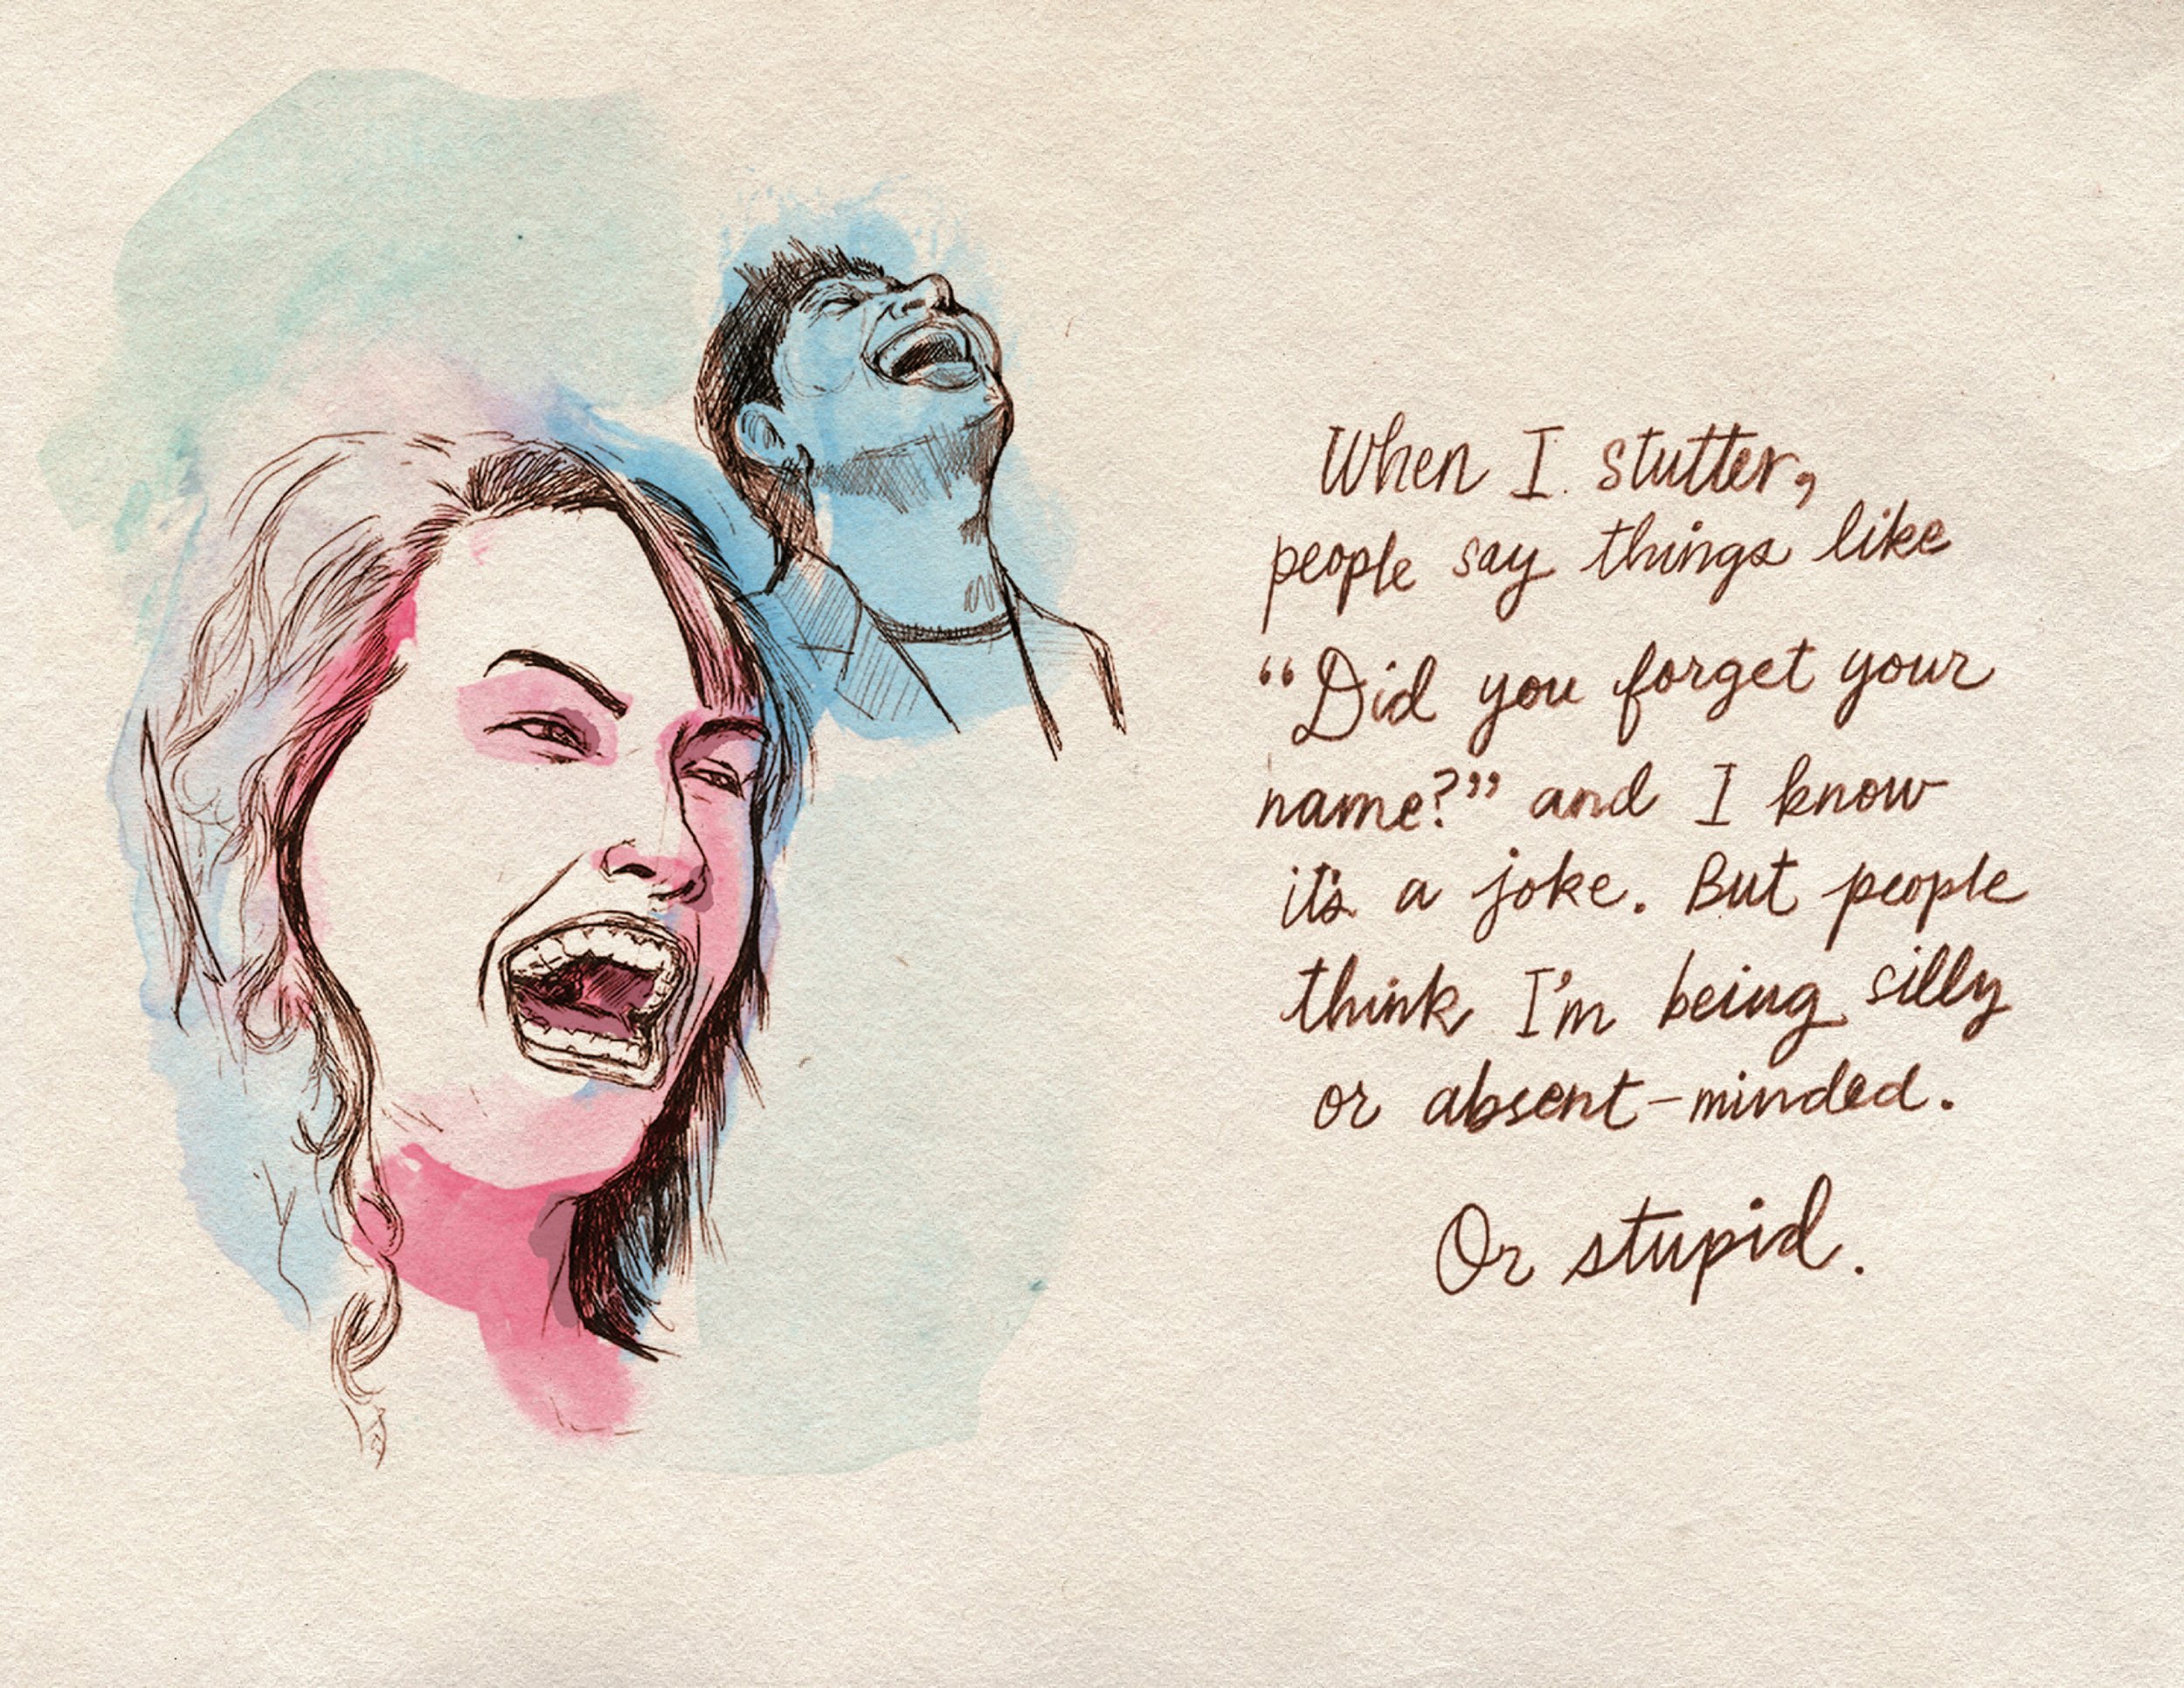 When I stutter,
people say things like
“Did you forget your
name?” and I know
it's a joke. But people
think I'm being silly
or absent-minded.
Or stupid.